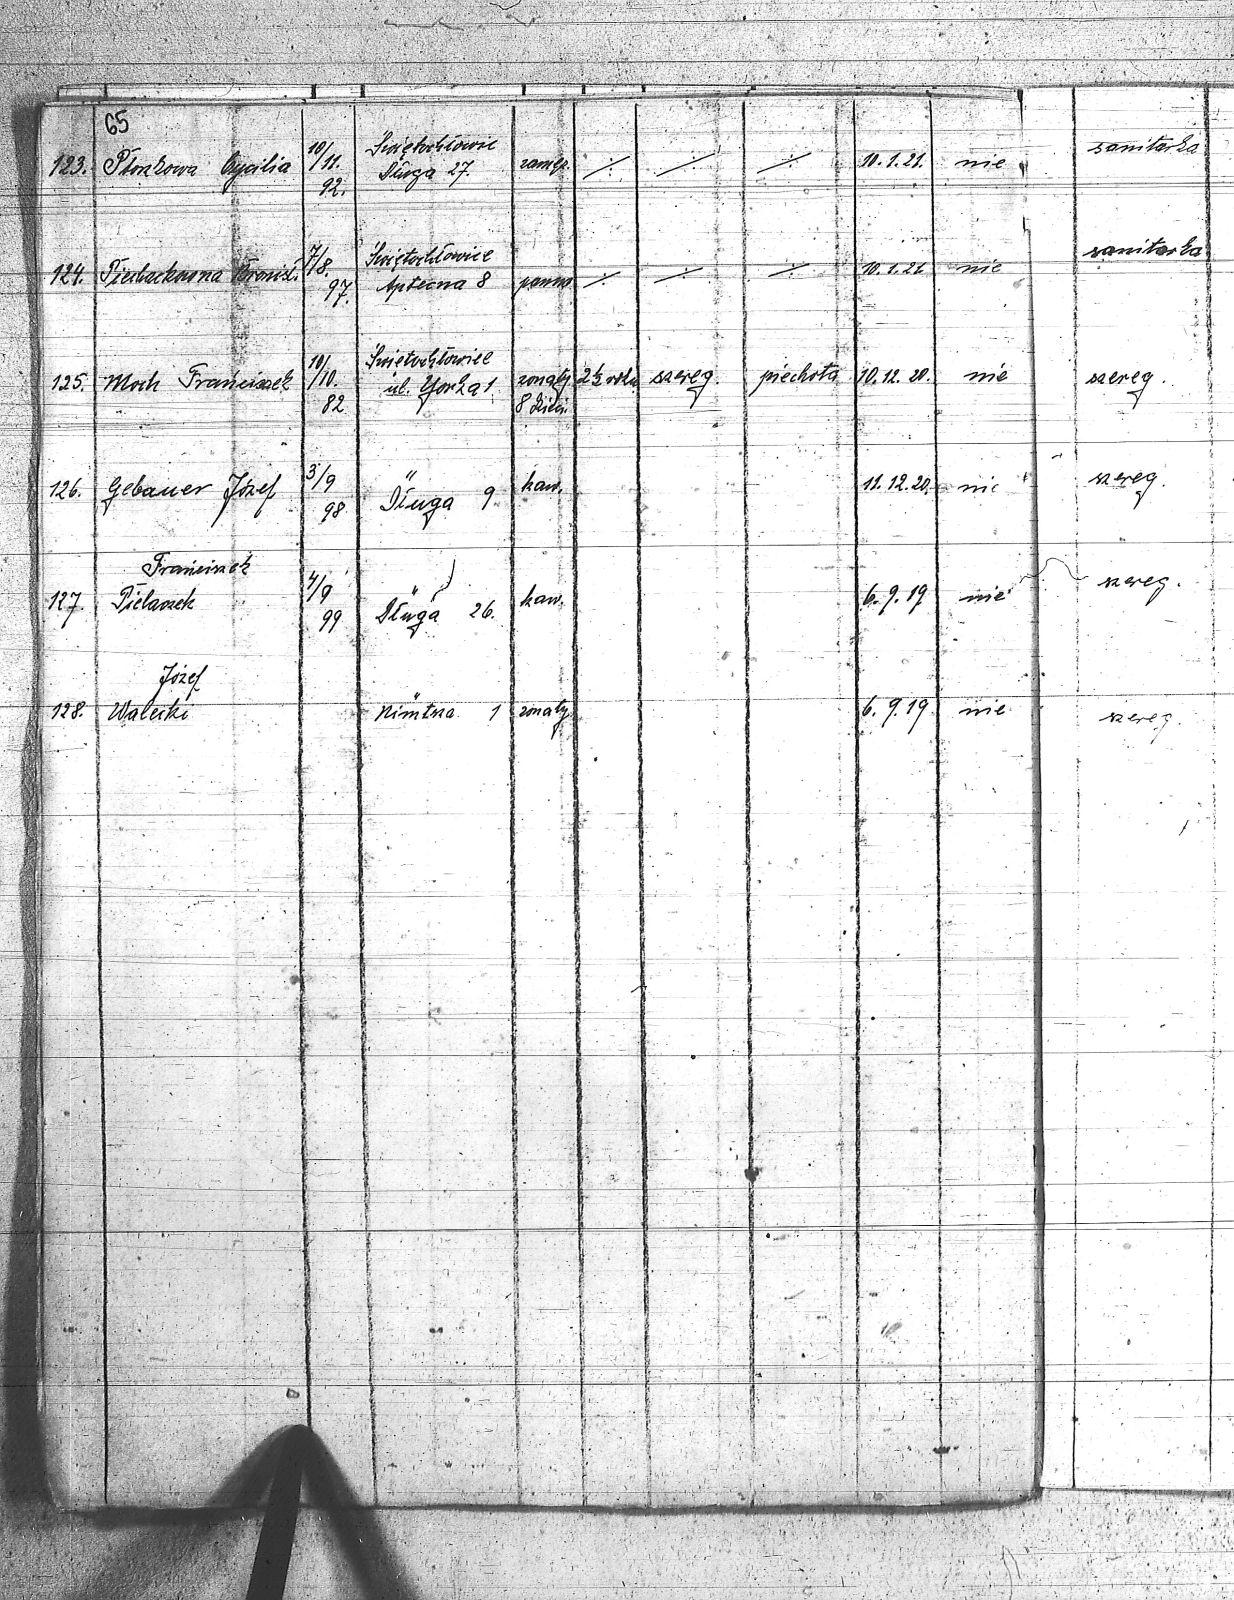 65
123. Płonkowa Cycilia 10/11. 92. Świętochłowic Długa 27. zamęż. ∕. ∕. ∕. 10.1.21. nie sanitarka
124. 7/8. 97. Świętochłowice Apteczna 8 panna ∕. ∕. ∕. 10.1.21. nie sanitarka
125. Moch Franciszek 10/10. 82 Świętochłowice ul. Górka 1 żonaty 8 dzieci. 2½ roku szereg. piechota 10.12.20. nie szereg.
126. Gebauer Józef 3/9 98 " Długa 9 kaw. 11.12.20. nie szereg.
127. Franciszek Pielaszek 4/9 99 " Długa 26. kaw. 6.9.19 nie szereg.
128. Józef Walecki " 1 żonaty 6.9.19 nie szereg.